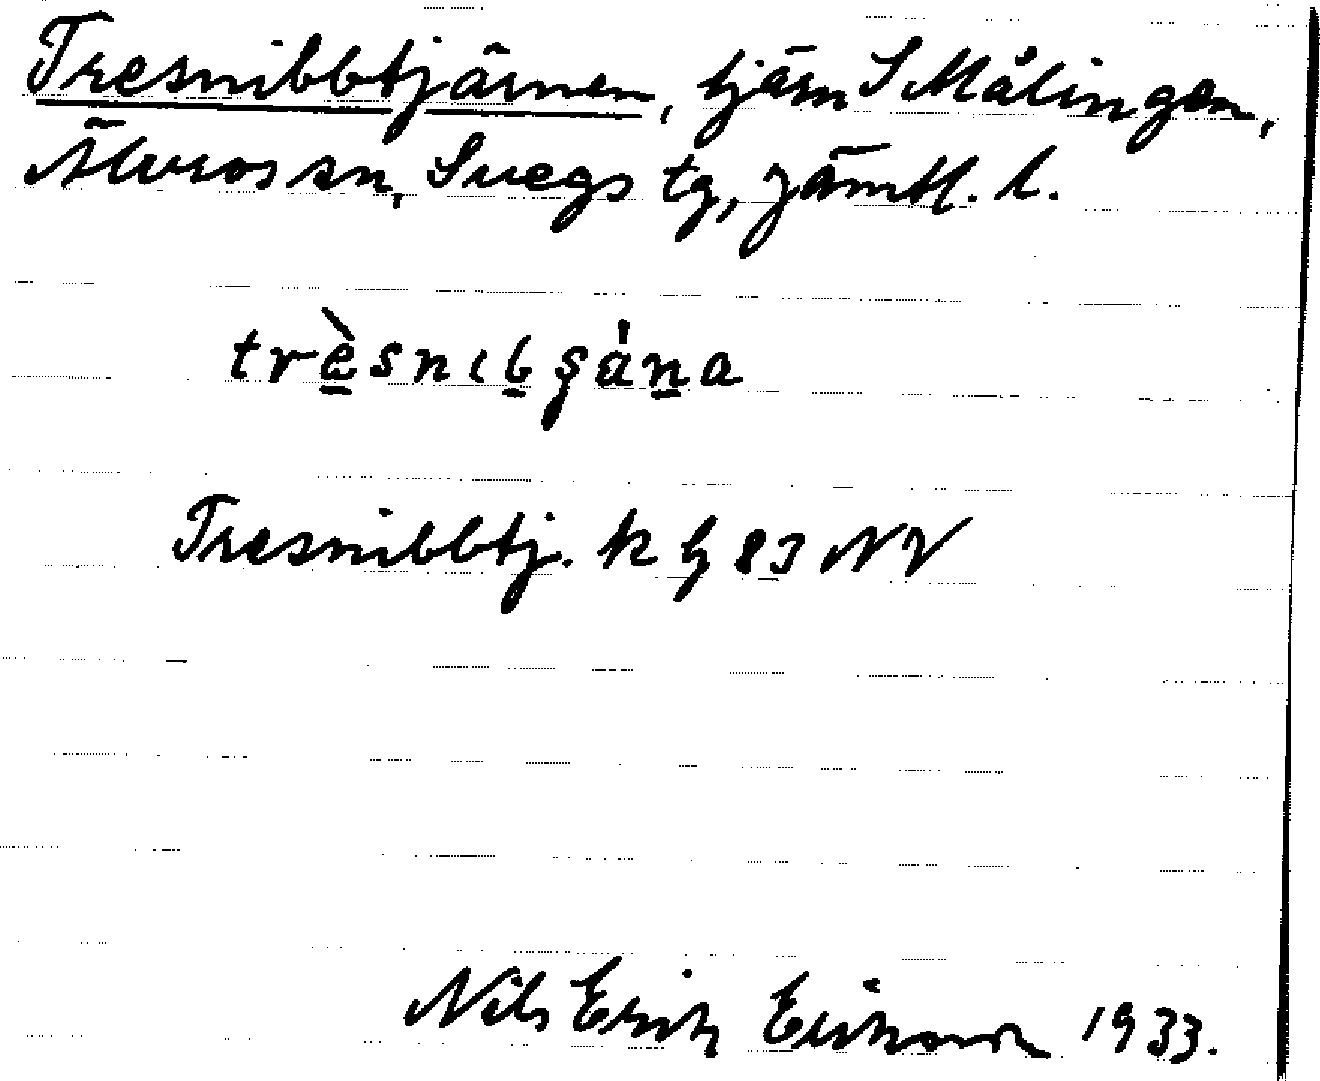 Tresnibbtjärnen, tjärn S Målingen,
Älvros sn, Svegs tg, Jämtl. l.
trèsnıbşȧna
Tresnibbtj. k bj 83 NV
Nils Erik Eriksson 1933.